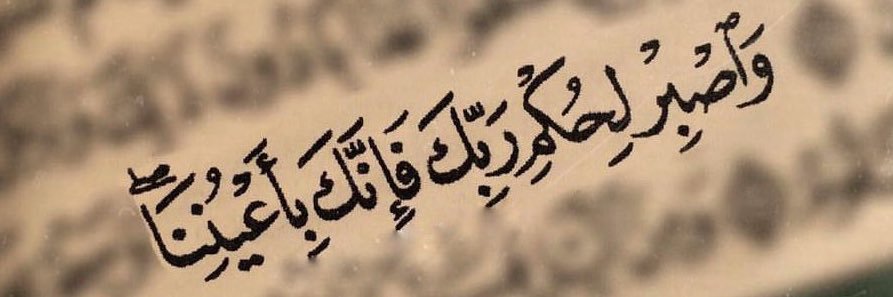 وَٱصْبِرْ لِحُكْمِ رَبِّكَ فَإِنَّكَ بِأَعْيُنِنَا ۖ